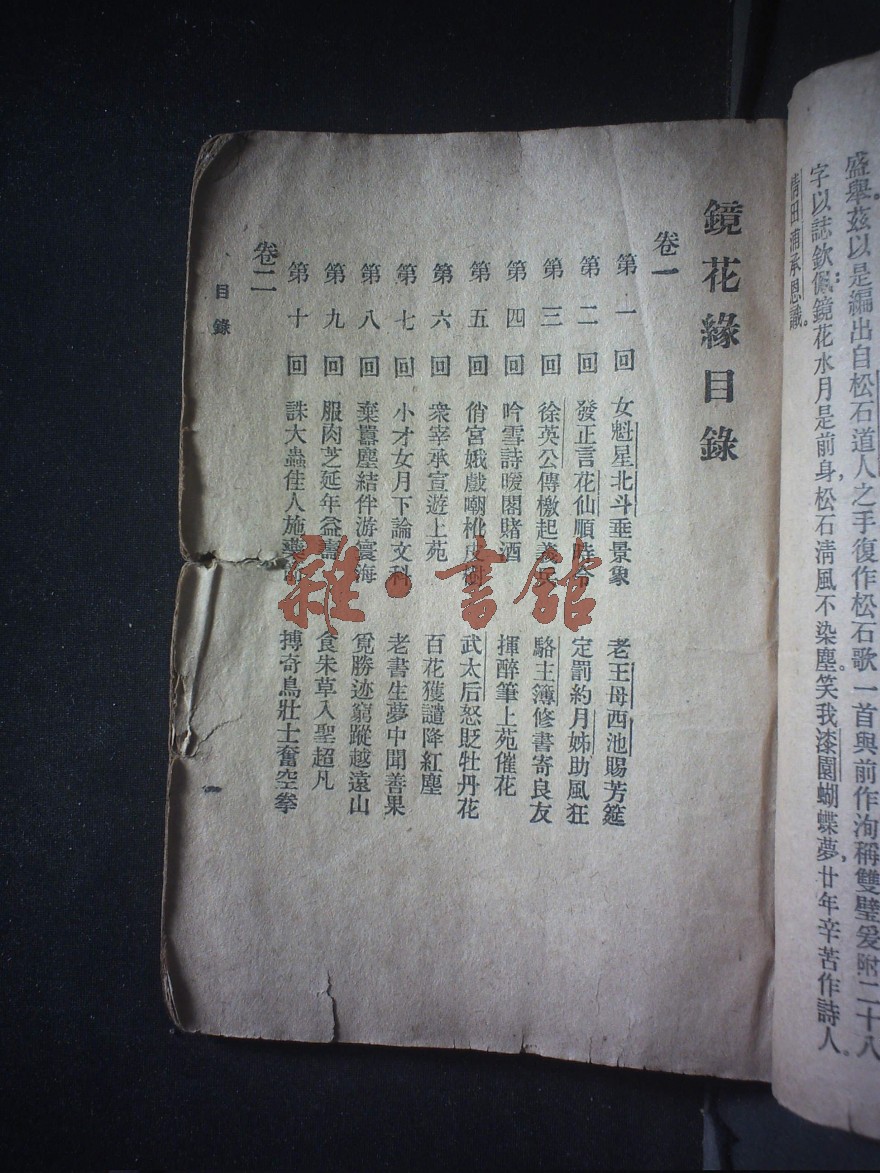 盛舉茲以是編出自松石道人之手復作松石歌一首與前作洵稱雙璧爰附二十八
字以誌欽佩鏡花水月是前身松石清風不染塵笑我漆園蝴蝶夢廿年辛苦作詩人。
浦承恩識。
鏡花緣目錄
卷一
第一回 女魁星北斗垂景象 老王母西池賜芳筵
第二回 發正言花仙順時令 定罰約月姊助風狂
第三回 徐英公傳檄起義兵 駱主簿修書寄良友
第四回 吟雪詩暖閣賭酒 揮醉筆上苑催花
第五回 俏宮娥戲嘲枇皮樹 武太后怒貶牡丹花
第六回 衆宰承宣遊上苑 百花獲譴降紅塵
第七回 小才女月下論文科 老書生夢中聞善果
第八回 棄囂塵結伴游寰海 覓勝迹窮蹤越遠山
第九回 服肉芝延年益壽 食朱草入聖超凡
第十回 誅大蟲佳人施藥箭 搏奇鳥壯士奮空拳
卷二
目錄
雜·書館